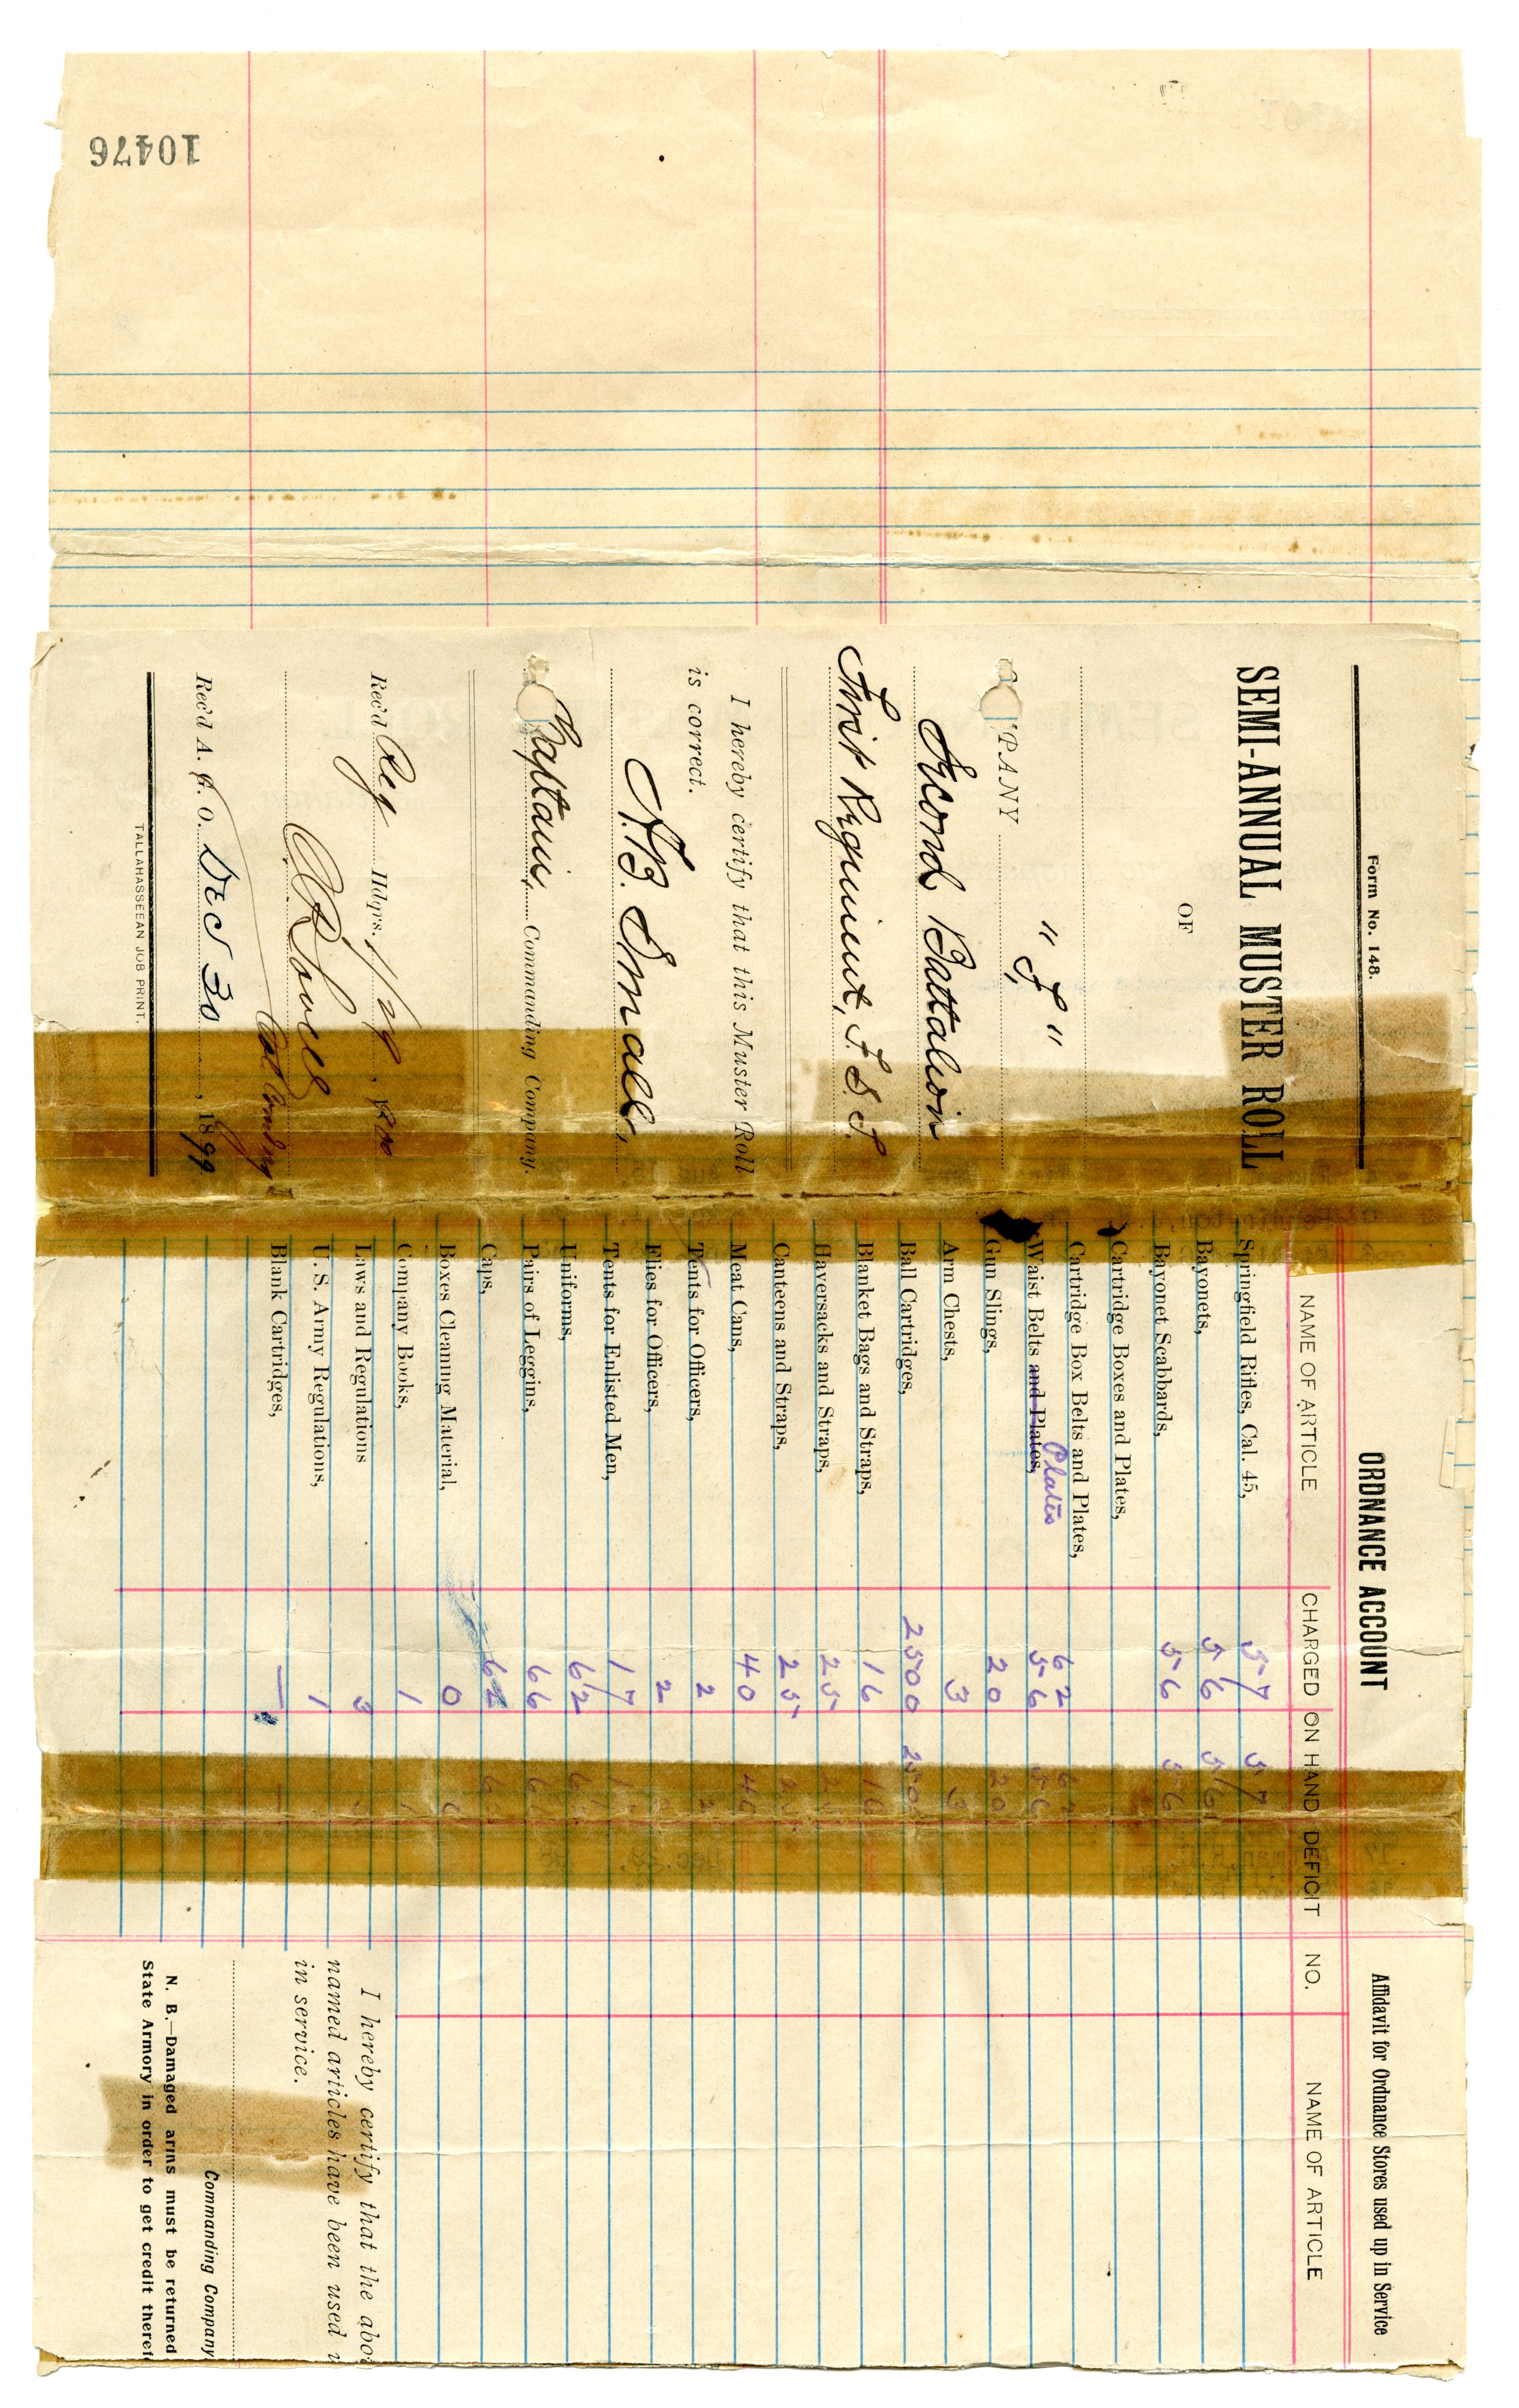 10476
Form No. 148.
SEMI-ANNUAL MUSTER ROLL
OF
"F"
PANY
Second Battalion
First Regiment, F. S. T.
I hereby certify that this Muster Roll
is correct.
Small,
Captain, Commanding Company.
Rec'd Reg Hdqrs. 1/29, 1900
Col Comdg
Rec'd A. G. O. Dec 30, 1899
TALLAHASSEEAN JOB PRINT.
ORDNANCE ACCOUNT
NAME OF ARTICLE CHARGED ON HAND DEFICIT
Springfield Rifles, Cal. 45, 57 57
Bayonets, 56 56
Bayonet Scabbards, 56 56
Cartridge Boxes and Plates,
Cartridge Box Belts and Plates, 62 62
Waist Belts and Plates, Plates 56 56
Gun Slings, 20 20
Arm Chests, 3 3
Ball Cartridges, 2500 2500
Blanket Bags and Straps, 16 16
Haversacks and Straps, 25
Canteens and Straps, 25
Meat Cans, 40 40
Tents for Officers, 2 2
Flies for Officers, 2
Tents for Enlisted Men, 17
Uniforms, 62
Pairs of Leggins, 66
Caps, 62
Boxes Cleaning Material, 0 0
Company Books, 1 1
Laws and Regulations 3
U. S. Army Regulations, 1
Blank Cartridges, —
Affidavit for Ordnance Stores used up in Service
NO. NAME OF ARTICLE
I hereby certify that the abo
named articles have been used
in service.
Commanding Company
N. B.—Damaged arms must be returned
State Armory in order to get credit theref